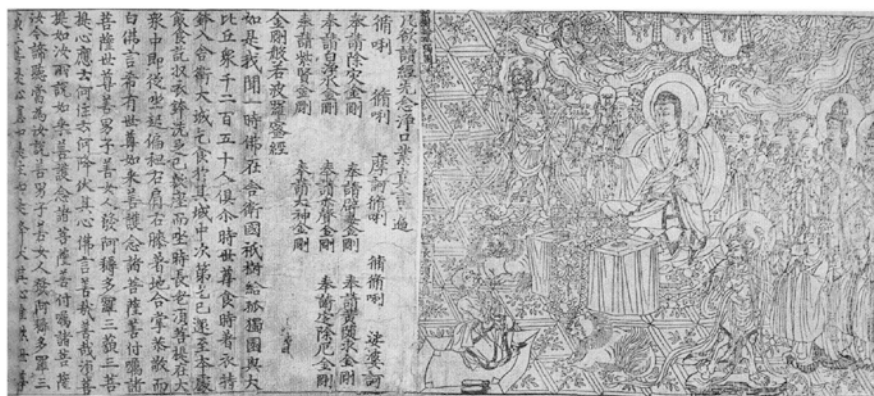 凡欲讀經先念淨口業真言一遍
脩唎 脩唎 摩訶脩唎 脩脩唎 娑婆訶
奉請除灾金剛 奉請辟毒金剛 奉請黃隨求金剛
奉請白淨水金剛 奉請赤聲金剛 奉請定除厄金剛
奉請紫賢金剛 奉請大神金剛
金剛般若波羅蜜經
如是我聞一時佛在舍衛國祇樹給孤獨園與大
比丘衆千二百五十人俱尒時世尊食時著衣持
鉢入舍衛大城乞食於其城中次第乞已還至本處
飯食訖收衣鉢洗足已敷座而坐時長老須菩提在大
衆中即從坐起偏袒右肩右膝著地合掌恭敬而
白佛言希有世尊如來善護念諸菩薩善付囑諸
菩薩世尊善男子善女人發阿耨多羅三藐三菩
提心應云何住云何降伏其心佛言善哉善哉須菩
提如汝所說如來善護念諸菩薩善付囑諸菩薩
汝今諦聽當為汝說善男子善女人發阿耨多羅三